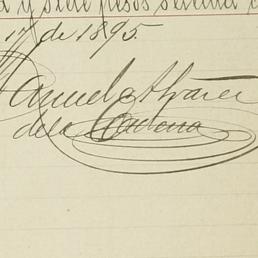 y siete pesos setenta
17 de 1895.
Manuel Alvarez
de la Cadena